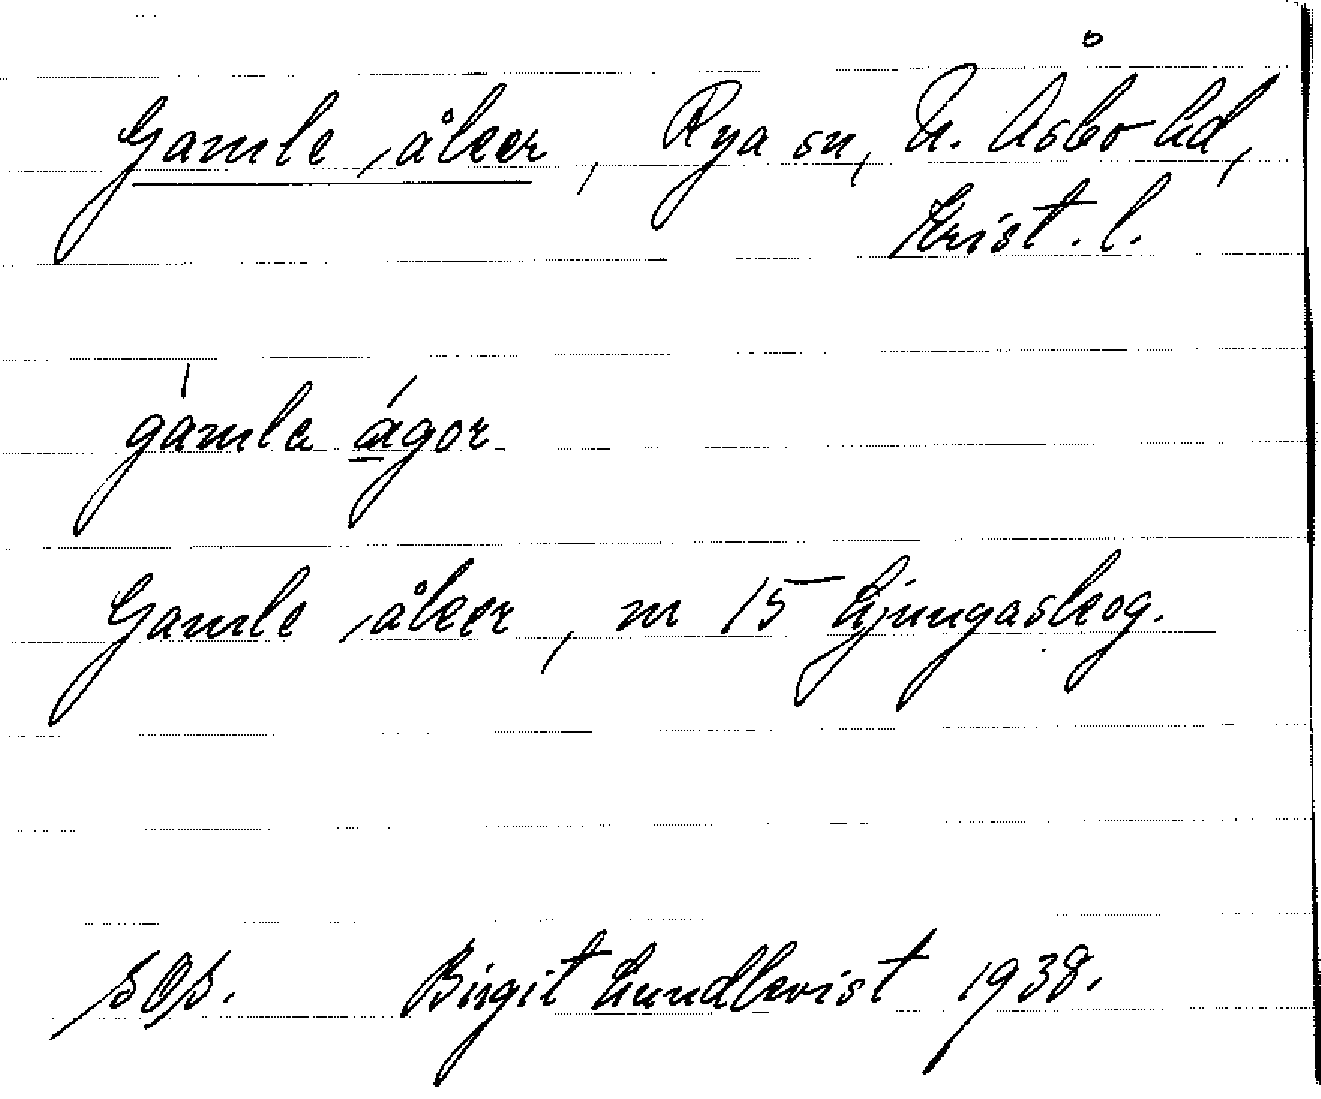 Gamle åker, Rya sn, N. Åsbo hd,
Krist. l.
gamla ågor
Gamle åker, nr 15 Ljungaskog.
Birgit Lundkvist 1938.